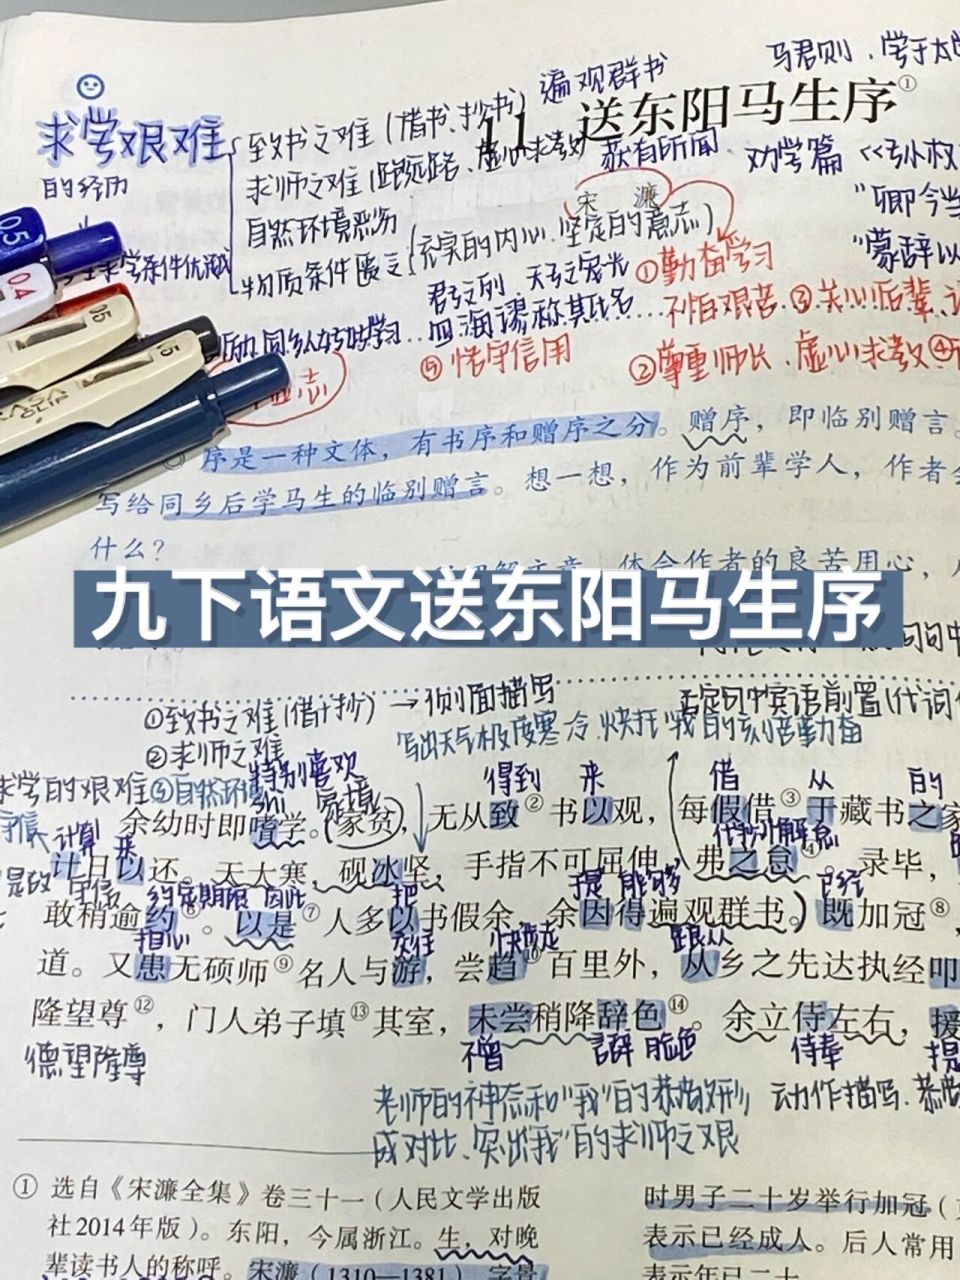 马君则、学于太
遍观群书
11 送东阳马生序①
求学艰难
的经历
致书之难（借书、抄书）
求师之难
虚心求教
获有所闻
劝学篇
自然环境恶劣
物质条件匮乏
（充实的内心、坚定的意志）
宋 濂
"卿今当
"蒙辞以
求学条件优越
①勤奋学习
四海谬称其氏名……
不怕艰苦
③关心后辈
⑤恪守信用
②尊重师长、虚心求教④
志
◎ 序是一种文体，有书序和赠序之分。赠序，即临别赠言。
写给同乡后学马生的临别赠言。想一想，作为前辈学人，作者
什么？
体会作者的良苦用心，
九下语文送东阳马生序
①致书之难（借+抄）→侧面描写
否定句中宾语前置（代词
写出天气极度寒冷，快扞"我"的刻苦勤奋
②求师之难
求学的艰难
特别喜欢
得到 来
借 从 的
余幼时即嗜学。（家贫），无从致②书以观，每假借③于藏书之家
计算 来
计日以还。天大寒，砚冰坚，手指不可屈伸，弗之怠④。录毕，
约定期限 因此 把
能够
已经
敢稍逾约⑥。以是⑦人多以书假余，余因得遍观群书。）既加冠⑧，
担心
交往
快步走
跟从
道。又患无硕师⑨名人与游，尝趋⑩百里外，从乡之先达执经叩
隆望尊⑫，门人弟子填⑬其室，未尝稍降辞色⑭。余立侍左右，援
德望隆尊
不曾 言辞 脸色 侍奉
老师的神态和"我"的恭敬好形
动作描写、恭
成对比，突出"我"的求师之艰
① 选自《宋濂全集》卷三十一（人民文学出版
社2014年版）。东阳，今属浙江。生，对晚
辈读书人的称呼。宋濂（1310—1381），字景
时男子二十岁举行加冠
表示已经成人。后人常用
表示年已二十